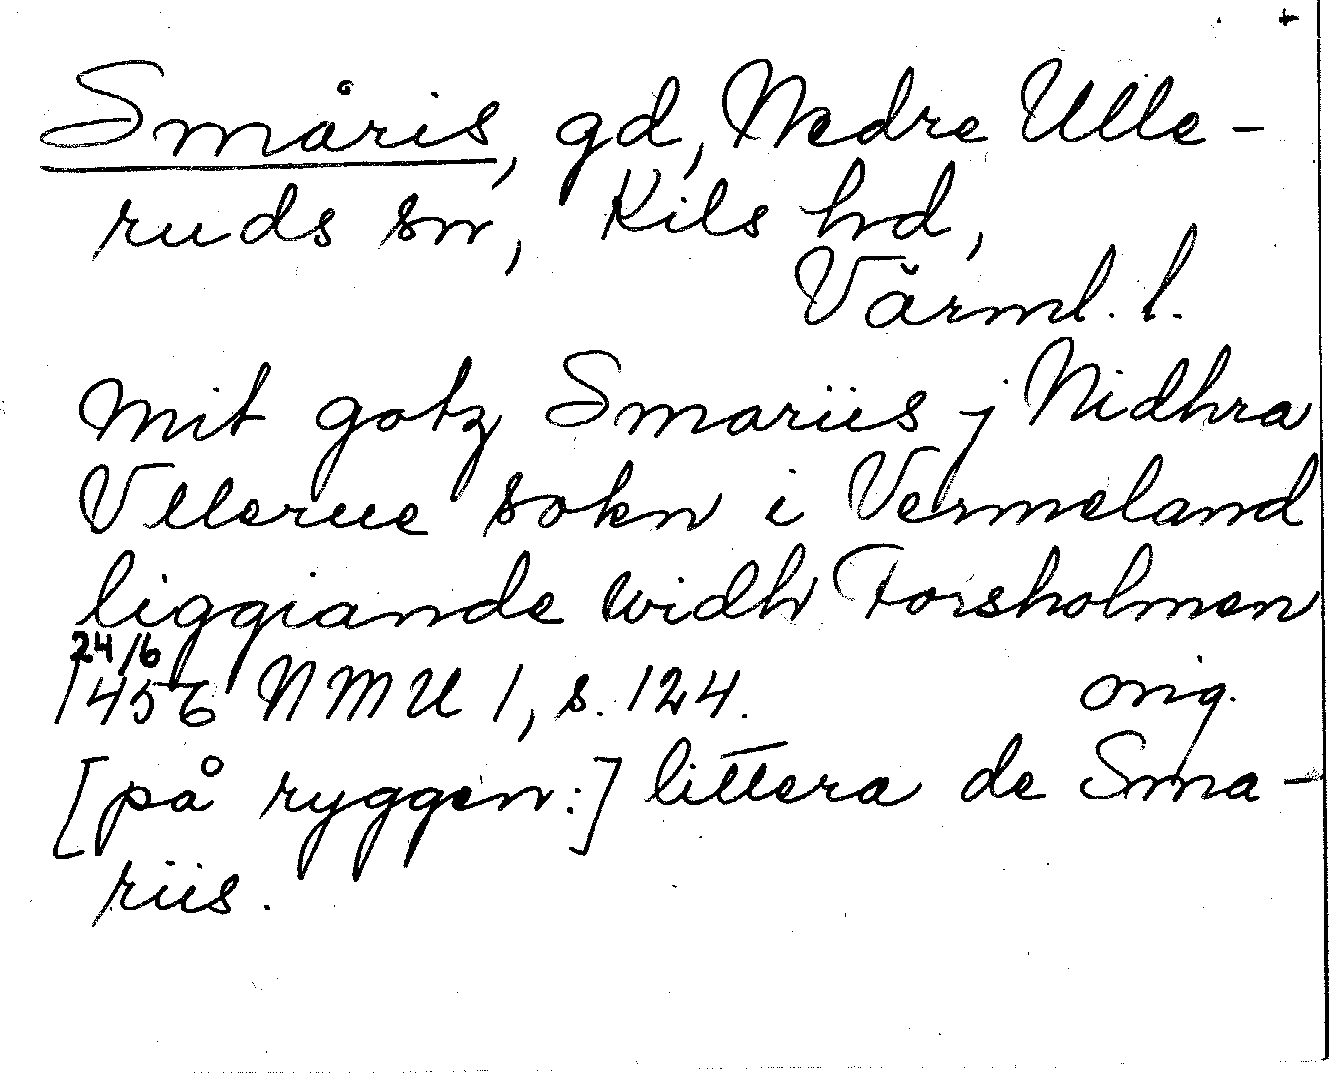 Småris, gd, Nedre Ulle-
ruds sn, Kils hd,
Värml. l.
mit gotz Smariis j Nidhra
Vllerue sokn i Vermeland
liggiande widh Forsholmen
24/6
1456 NMU 1, s. 124. orig.
[på ryggen:] littera de Sma-
riis.